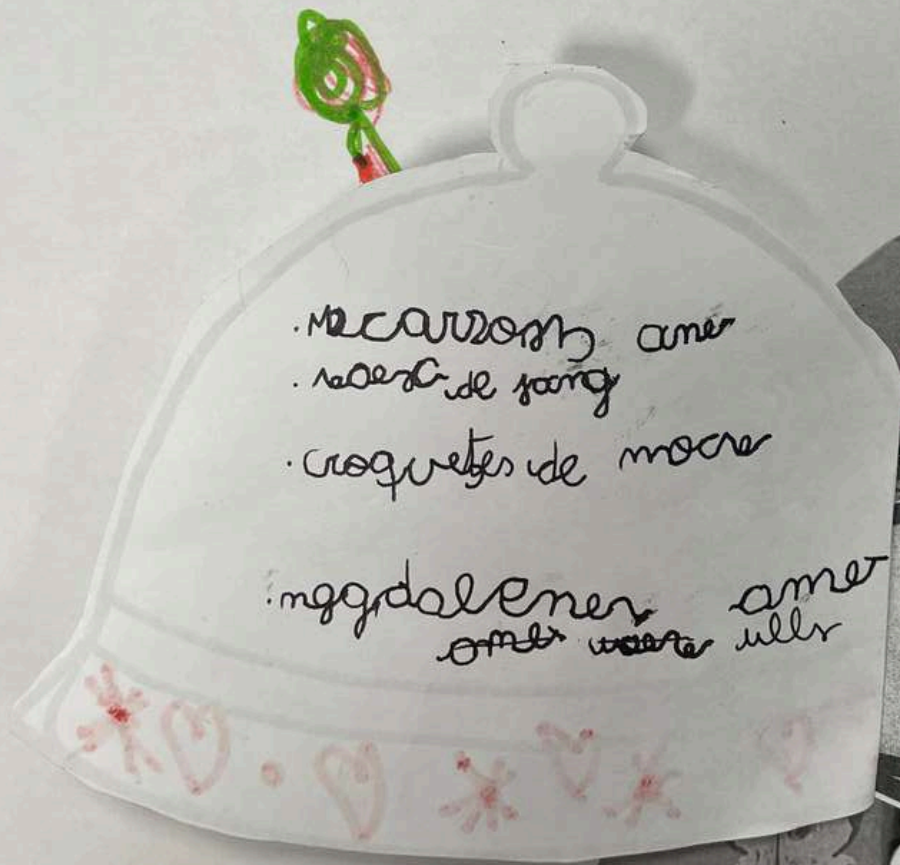 · Macarrons amer
· de sang
· croquetes de mocs
· magdalenes amer
ulls